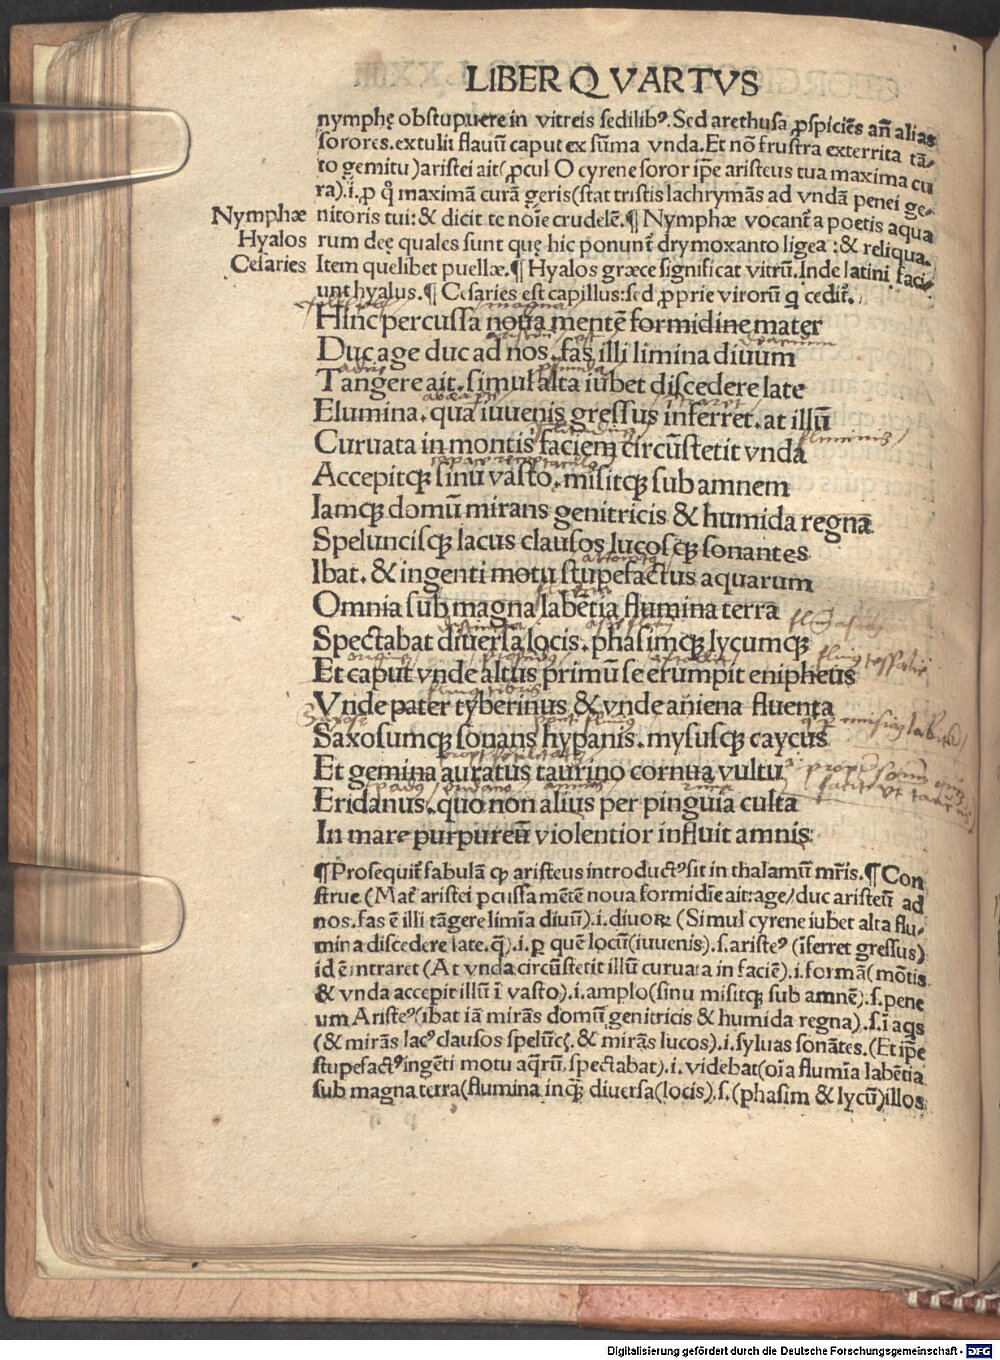 LIBER QVARTVS
nymphę obstupuere in vitreis sedilibꝰ. Sed arethusa ꝓspiciēs añ alias
sorores. extulit flauū caput ex sūma vnda. Et nō frustra exterrita tā-
to gemitu) aristei ait (ꝓcul O cyrene soror ip̄e aristeus tua maxima cu
ra). i. ꝑ q̊ maximā curā geris (stat tristis lachrymās ad vndā penei ge-
Nymphæ nitoris tui: & dicit te noīe crudelē. ¶ Nymphæ vocant̄ a poetis aqua
Hyalos rum deę quales sunt quę hic ponunt̄ drymoxanto ligea: & reliqua.
Cesaries Item quelibet puellæ. ¶ Hyalos græce significat vitrū. Inde latini faci-
unt hyalus. ¶ Cesaries est capillus: sed ꝓprie virorū q cedit̄.
Hinc percussa noua mentē formidine mater
deorum
Duc age duc ad nos. fas illi limina diuum
Tangere ait. simul alta iubet discedere late
intraret
Flumina. qua iuuenis gressus inferret. at illū
fluminis
Curuata in montis faciem circūstetit vnda
Accepitqꝫ sinu vasto. misitqꝫ sub amnem
Iamqꝫ domū mirans genitricis & humida regna
Speluncisqꝫ lacus clausos lucosqꝫ sonantes
attonitus
Ibat. & ingenti motu stupefactus aquarum
Omnia sub magna labētia flumina terra
Spectabat diuersa locis. phasimqꝫ lycumqꝫ
Et caput vnde altus primū se erumpit enipheus
Vnde pater tyberinus & vnde aniena fluenta
Saxosumqꝫ sonans hypanis. mysusqꝫ caycus
Et gemina auratus taurino cornua vultu
padus
Eridanus. quo non alius per pinguia culta
In mare purpureū violentior influit amnis
¶ Prosequit̄ fabulā qꝫ aristeus introductꝰ sit in thalamū mr̄is. ¶ Con
strue. (Mat̄ aristei pcussa mētē noua formidīe ait: age/ duc aristeū ad
nos. fas ē illi tāgere limīa diuū). i. diuoꝝ (Simul cyrene iubet alta flu-
mina discedere late. q̄). i. ꝑ quē locū (iuuenis). s. aristeꝰ (īferret gressus)
id ē intraret (At vnda circūstetit illū curuata in faciē). i. formā (mōtis
& vnda accepit illū ī vasto). i. amplo (sinu misitqꝫ sub amnē). s. pene
um Aristeꝰ (ibat iā mirās domū genitricis & humida regna). s. ī aqs
(& mirās lacꝰ clausos spelūcꝭ. & mirās lucos). i. syluas sonātes. (Et ip̄e
stupefactꝰ ingēti motu aq̄rū spectabat). i. videbat (oīa flumīa labētia
sub magna terra (flumina inqꝫ diuersa (locis). s. (phasim & lycū) illos
Digitalisierung gefördert durch die Deutsche Forschungsgemeinschaft - DFG